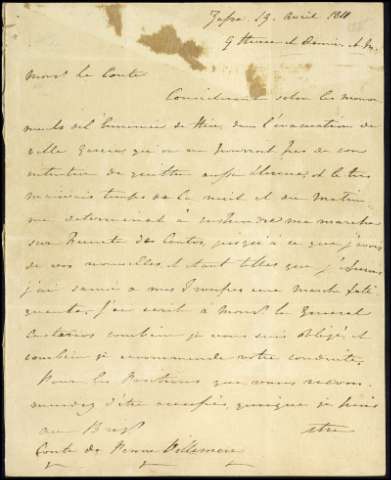 Zafra 19 Avril 1811
9 Heures et Demie
Mons. Le Comte
Considerant selon les mouve
ments de l'ennemie de Hier, dans l'évacuation de
ville Garcia qui on ne pourront pas de son
intention de quitter aussi Llerena, et le tres
mauvais temps de la nuit et du Matin
me determinait à suspendre ma marche
sur Fuente de Cantos, jusqu'à ce que j'avois
de vos nouvelles et tant telles que
j'ai sauvé à mes Troupes une marche fati
guante. J'ai ecrit à Mons. le General
Castaños combien je vous suis obligé, et
combien je recommande votre conduite.
Pour les Positions que vous recom
mandez d'être occupés, quoique je suis
au etre
Comte de Penne Villemure